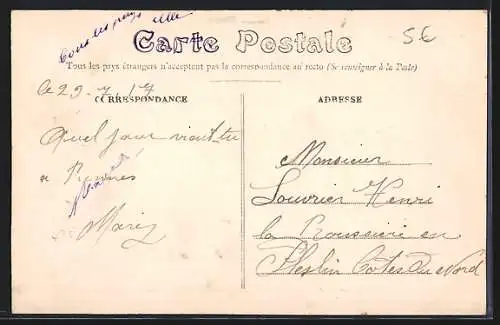 Tous les pays
Carte Postale
5€
Tous les pays étrangers n'acceptent pas la correspondance au recto (Se renseigner à la Poste)
le 29-7-17
CORRESPONDANCE
Quel jour vient-tu
a Rennes
Marie
ADRESSE
Monsieur
Louvrier Henri
la Roussière en
Pleslin Côtes Du Nord